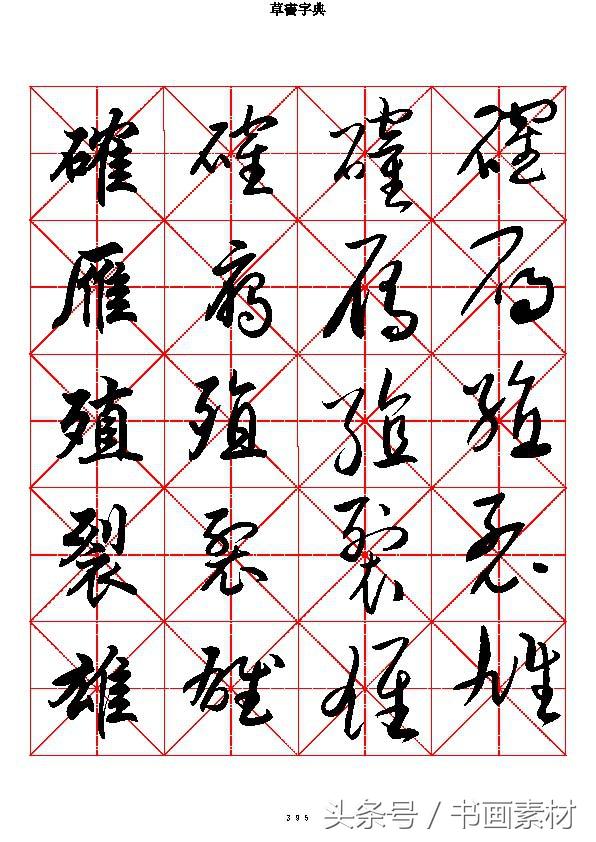 草書字典
確 確 確 確
雁 雁 雁 雁
殖 殖 殖 殖
裂 裂 裂 裂
雄 雄 雄 雄
395
头条号 / 书画素材